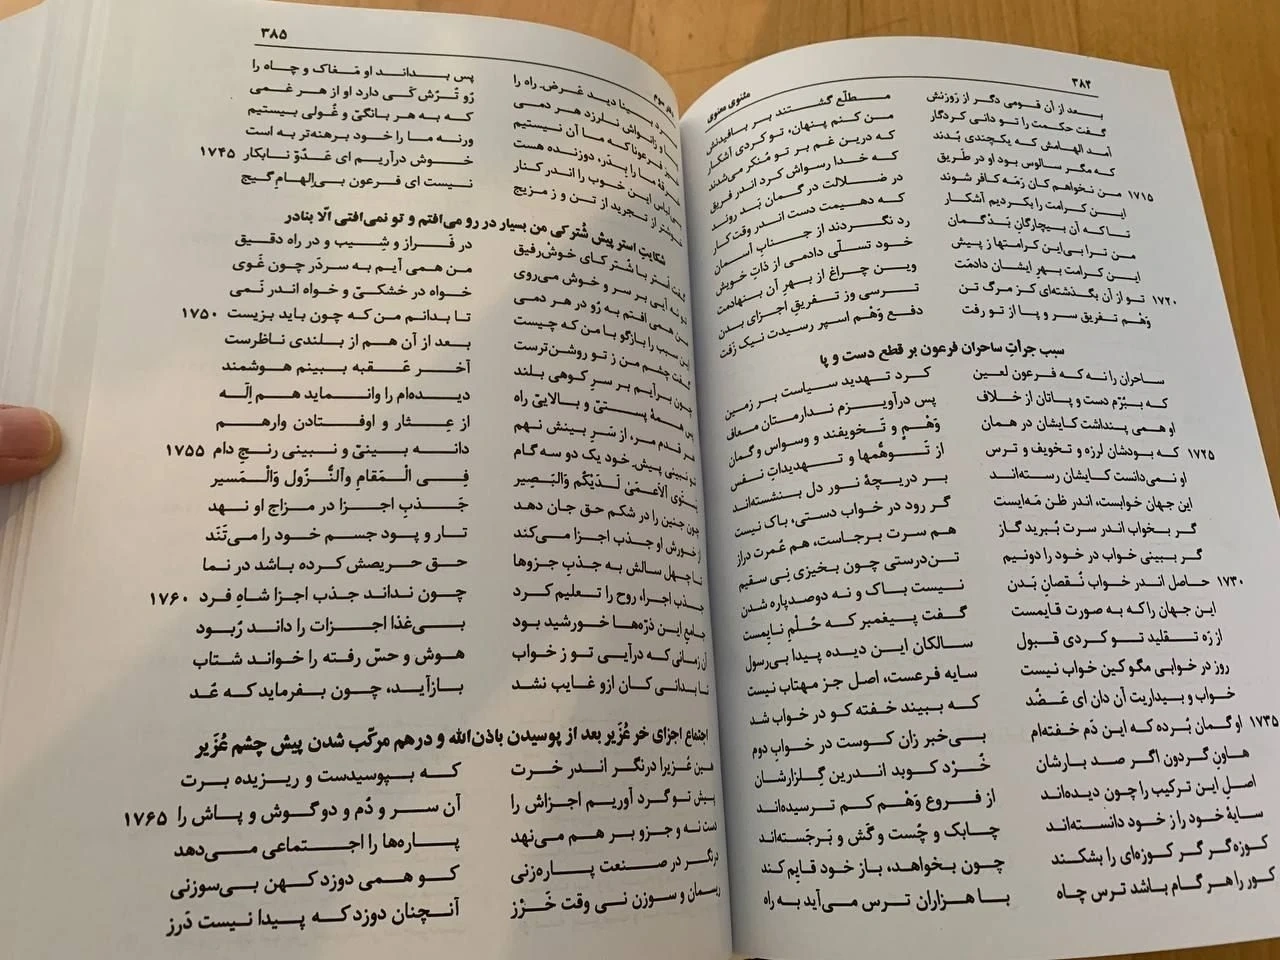 ۳۸۴
مثنوی معنوی
بعد از آن قومی دگر از رَوزنش مطلّع گشتند بر بافیدنش
گفت حکمت را تو دانی کردگار من کنم پنهان، تو کردی آشکار
آمد الهامش که یکچندی بُدند که درین غم بر تو مُنکر می‌شدند
که مگر سالوس بود او در طَریق که خدا رسواش کرد اندر فریق
۱۷۱۵ من نخواهم کان رَمَه کافر شوند در ضلالت در گمان بَد روند
این کرامت را بکردیم آشکار که دهیمت دست اندر وقت کار
تا که آن بیچارگانِ بَدگمان رد نگردند از جنابِ آسمان
من ترا بی‌این کرامتها ز پیش خود تسلّی دادمی از ذاتِ خویش
این کرامت بهرِ ایشان دادمَت وین چراغ از بهرِ آن بنهادمت
۱۷۲۰ تو از آن بگذشته‌ای کز مرگ تن ترسی وز تفریقِ اجزای بدن
وَهْم تفریق سر و پا از تو رفت دفع وَهْم اسپر رسیدت نیک زَفت
سبب جرأتِ ساحران فرعون بر قطع دست و پا
ساحران را نه که فرعون لعین کرد تهدید سیاست بر زمین
که بِبُرَّم دست و پاتان از خلاف پس درآویزم ندارمتان معاف
او همی پنداشت کایشان در همان وَهْمْ و تَخویفند و وسواس و گمان
۱۷۲۵ که بودشان لرزه و تخویف و ترس از تَوهُّمها و تهدیداتِ نفس
او نمی‌دانست کایشان رسته‌اند بر دریچهٔ نور دل بنشسته‌اند
این جهان خوابست، اندر ظن مَه‌ایست گر رود در خواب دستی، باک نیست
گر بخواب اندر سرت بُبرید گاز هم سرت برجاست، هم عُمرت دراز
گر ببینی خواب در خود را دونیم تن‌درستی چون بخیزی نِی سقیم
۱۷۳۰ حاصل اندر خواب نُقصانِ بَدن نیست باک و نه دوصدپاره شدن
این جهان را که به صورت قایمست گفت پیغمبر که حُلْمِ نایمست
از رَه تقلید تو کردی قبول سالکان این دیده پیدا بی‌رسول
روز در خوابی مگو کین خواب نیست سایه فرعست، اصل جز مهتاب نیست
خواب و بیداریت آن دان ای عَضُد که ببیند خفته کو در خواب شد
۱۷۳۵ او گمان بُرده که این دَم خفته‌ام بی‌خبر زان کوست در خوابِ دوم
هاونِ گردون اگر صد بارشان خُرْد کوبد اندرین گِلزارشان
اصلِ این ترکیب را چون دیده‌اند از فروع وَهْم کم ترسیده‌اند
سایهٔ خود را ز خود دانسته‌اند چابک و چُست و گَش و بَرجَسته‌اند
کوزه‌گر گر کوزه‌ای را بشکند چون بخواهد، باز خود قایم کند
کور را هر گام باشد ترس چاه با هزاران ترس می‌آید به راه
۳۸۵
دید عَرضِ راه را پس بداند او مَغاک و چاه را
و زانواش نلرزد هر دمی رُو تُرُش کَی دارد او از هر غمی
فرعونا که ما آن نیستیم که به هر بانگیّ و غُولی بیستیم
ما را بِدَر، دوزنده هست ورنه ما را خود برهنه‌تر به است
این خوب را اندر کنار خوش درآریم ای عَدُوّ نابکار ۱۷۴۵
از تجرید از تن و ز مزیج نیست ای فرعون بی‌اِلهامِ گیج
شکایتِ استر پیشِ شُتر کی من بسیار در رو می‌افتم و تو نمی‌افتی اِلّا بنادر
گفت اُستر با شُتر کای خوش‌رفیق در فَراز و شِیب و در راه دقیق
تو نه آیی بر سر و خوش می‌روی من همی آیم به سردَر چون غَوی
من همی افتم به رُو در هر دمی خواه در خشکیّ و خواه اندر نَمی
این سبب را بازگو با من که چیست تا بدانم من که چون باید بزیست ۱۷۵۰
گفت چشم من ز تو روشن‌ترست بعد از آن هم از بلندی ناظرست
چون برآیم بر سرِ کوهی بلند آخر عَقبه ببینم هوشمند
پس همهٔ پستیّ و بالاییِّ راه دیده‌ام را وانماید هم اِلٰه
هر قدم من، از سَرِ بینش نهم از عِثار و اوفتادن وارهم
تو نبینی پیش خود یک دو سه گام دانه بینیّ و نبینی رنجِ دام ۱۷۵۵
یَسْتَوِی اَلاَعمَیٰ لَدَیْکُم وَالبَصِیر فِی الْمَقامِ وَالنُّزُول وَالْمَسیر
چون جنین را در شکم حق جان دهد جَذبِ اجزا در مزاج او نهد
از خورش او جذب اجزا می‌کند تار و پود جسم خود را می‌تَنَد
تا چهل سالش به جذبِ جزوها حق حریصش کرده باشد در نما
جذبِ اجزا، روح را تعلیم کرد چون نداند جذب اجزا شاهِ فرد ۱۷۶۰
جامع این ذرّه‌ها خورشید بود بی‌غذا اجزات را داند رُبود
آن زمانی که درآیی تو ز خواب هوش و حسّ رفته را خواند شتاب
تا بدانی کان ازو غایب نشد بازآید، چون بفرماید که عُد
اجتماع اجزای خر عُزَیر بعد از پوسیدن باذن‌الله و درهم مرکّب شدن پیش چشم عُزَیر
هین عُزیرا درنگر اندر خرت که بپوسیدست و ریزیده برت
پیش تو گرد آوریم اجزاش را آن سر و دُم و دو گوش و پاش را ۱۷۶۵
دست نه و جزو بر هم می‌نهد پاره‌ها را اجتماعی می‌دهد
درنگر در صنعت پاره‌زنی کو همی دوزد کهن بی‌سوزنی
ریسمان و سوزن نی وقت خَرْز آنچنان دوزد که پیدا نیست دَرز